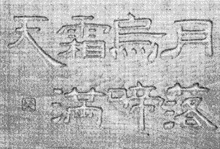 月落
烏啼
霜滿
天